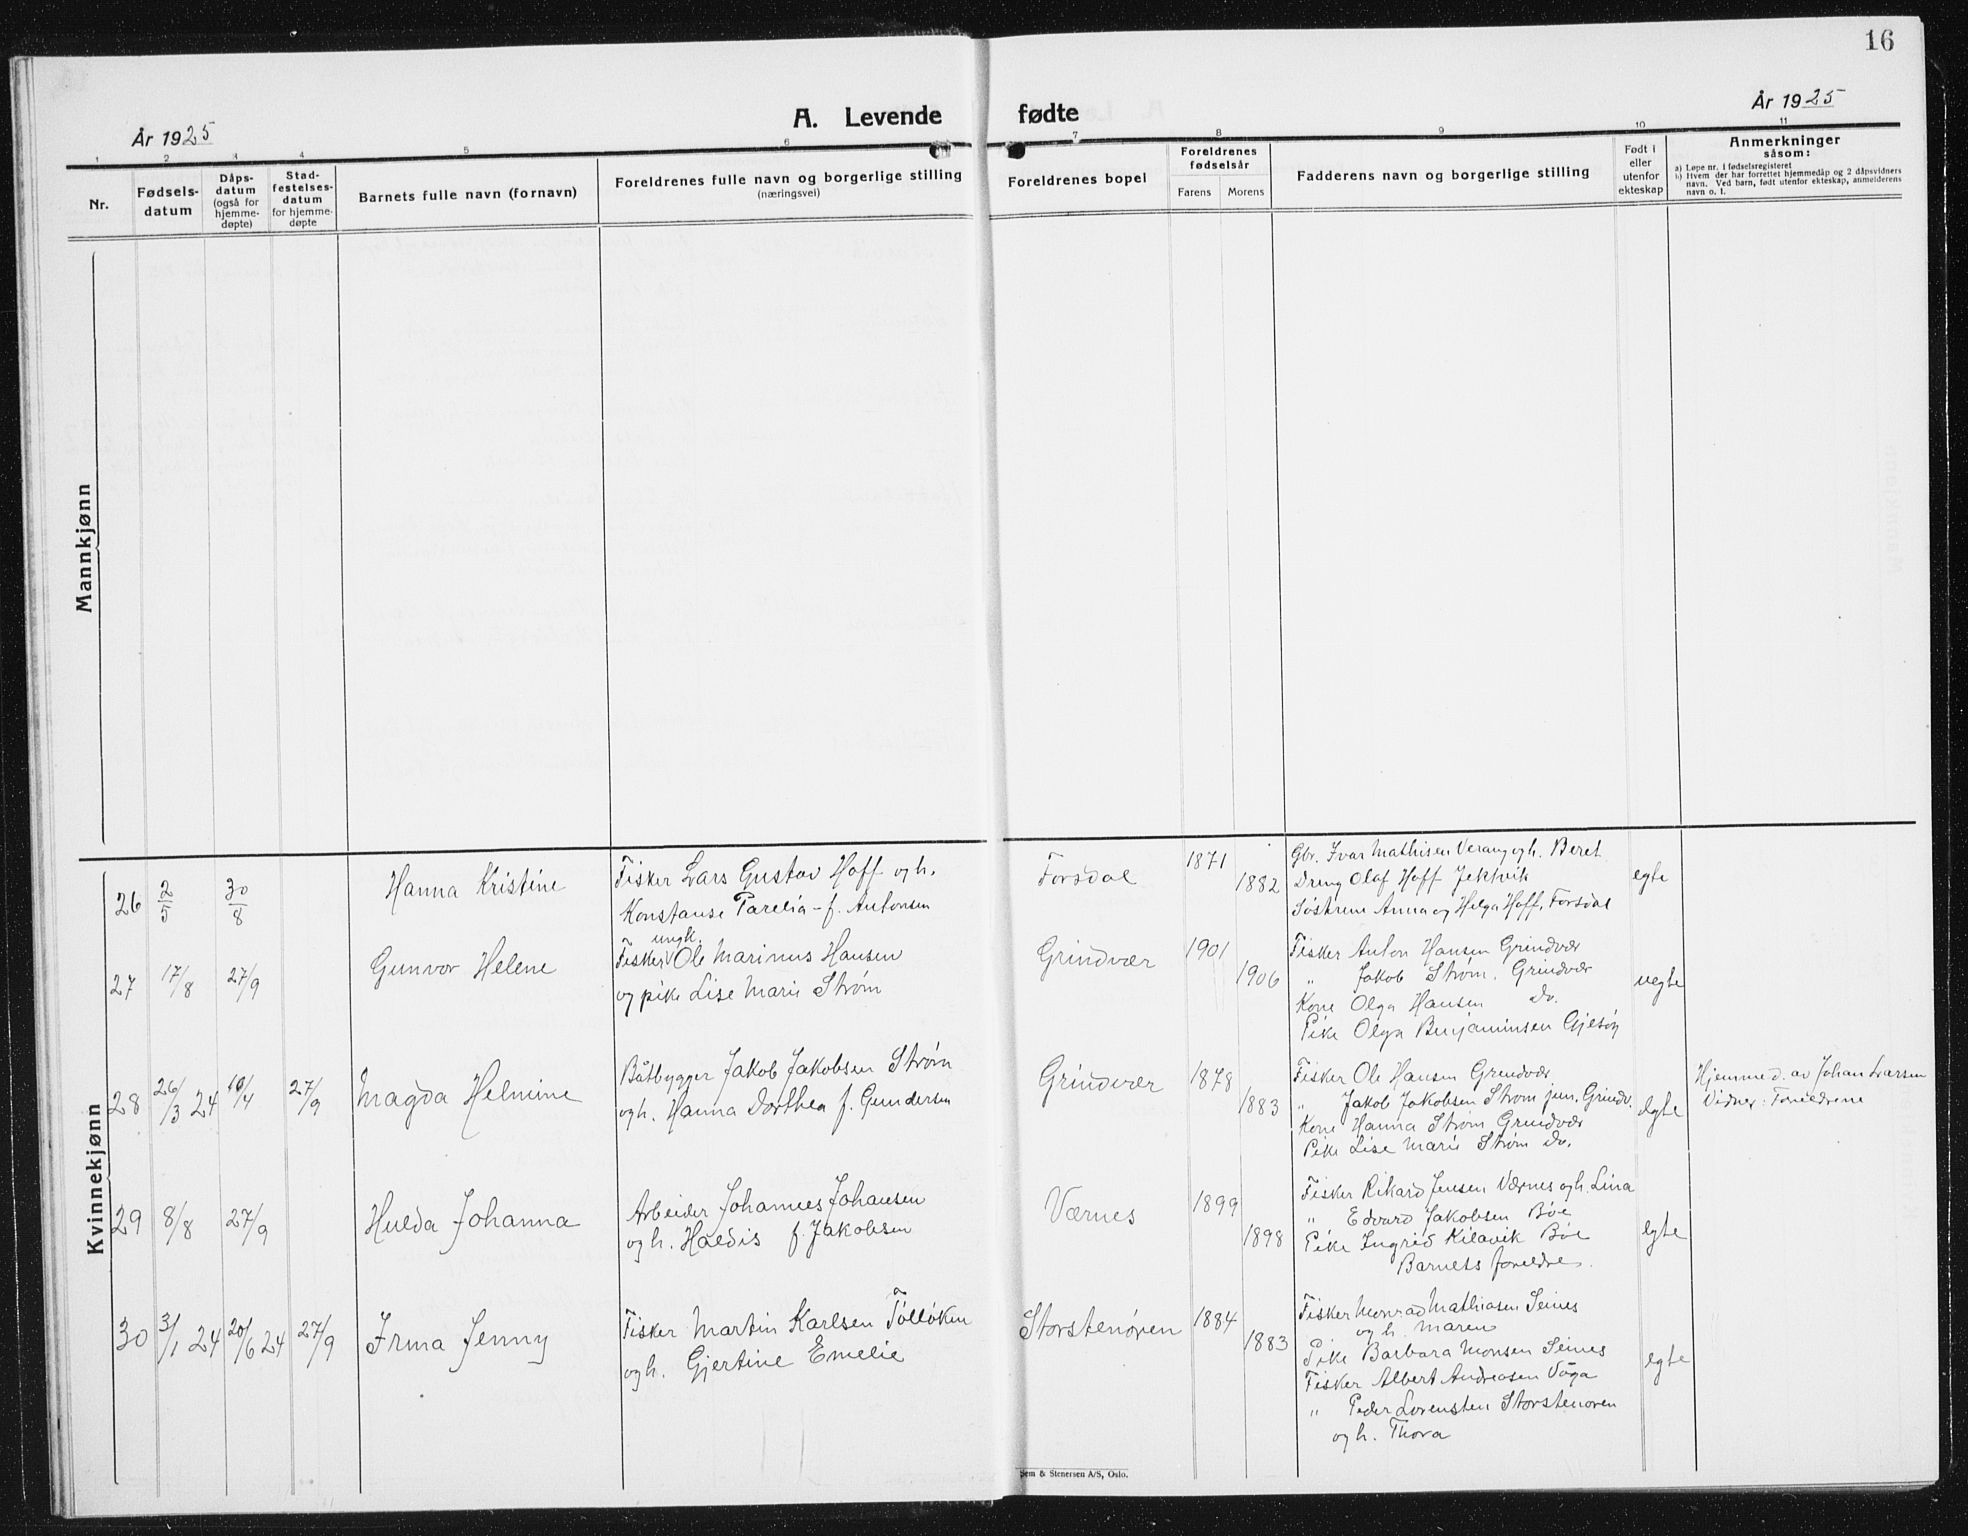 16
År 1925
A. Levende fødte
År 1925
1 2 3 4 5 6 7 8 9 10 11
Nr.
Fødsels-
datum
Dåps-
datum
(også for
hjemme-
døpte)
Stad-
festelses-
datum
for hjemme-
døpte
Barnets fulle navn (fornavn)
Foreldrenes fulle navn og borgerlige stilling
(næringsvei)
Foreldrenes bopel
Foreldrenes
fødselsår
Farens Morens
Fadderens navn og borgerlige stilling
Født i
eller
utenfor
ekteskap
Anmerkninger
såsom:
a) Løpe nr. i fødselsregisteret
b) Hvem der har forrettet hjemmedåp og 2 dåpsvidners
navn. Ved barn, født utenfor ekteskap, anmelderens
navn o. l.
Mannkjønn
Kvinnekjønn
26 2/5 30/8 Hanna Kristine
Fisker Lars Gustav Hoff og h.
Konstanse Parelia f. Antonsen
Forsdal 1871 1882
Gbr. Ivar Mathisen Verang og h. Beret
Dreng Olaf Hoff Jektvik
Søstrene Anna og Helga Hoff, Forsdal
egte
27 17/8 27/9 Gunvor Helene
ungk.
Fisker Ole Marinus Hansen
og pike Lise Marie Strøm
Grindvær 1901 1906
Fisker Anton Hansen Grindvær
" Jakob Strøm. Grindvær
Kone Olga Hansen Do.
Pike Olga Benjaminsen Gjesøy
uegte
28 26/3 24 10/4 27/9 Magda Helmine
Båtbygger Jakob Jakobsen Strøm
og h. Hanna Dorthea f. Gundersen
Grindvær 1878 1883
Fisker Ole Hansen Grindvær
" Jakob Jakobsen Strøm jun. Grindv.
Kone Hanna Strøm Grindvær
Pike Lise Marie Strøm Do.
egte
Hjemmed. av Johan Larsen
Vidner: Foreldrene
29 8/8 27/9 Hulda Johanna
Arbeider Johannes Johansen
og h. Haldis f. Jakobsen
Værnes 1899 1898
Fisker Rikard Jensen Værnes og h. Lina
" Edvard Jakobsen Bøe
Pike Ingrid Kilavik Bøe
Barnets foreldre.
egte
30 3/1 24 20/6 24 27/9 Irma Jenny
Fisker Martin Karlsen
og h. Gjertine Emelie
Storstenøren 1884 1883
Fisker Monrad Mathiasen Seines
og h. Maren
Pike Barbara Monsen Seines
Fisker Albert Andreasen Våga
" Peder Lorentsen Storstenøren
og h. Thora
egte
Sem & Stenersen A/S, Oslo.